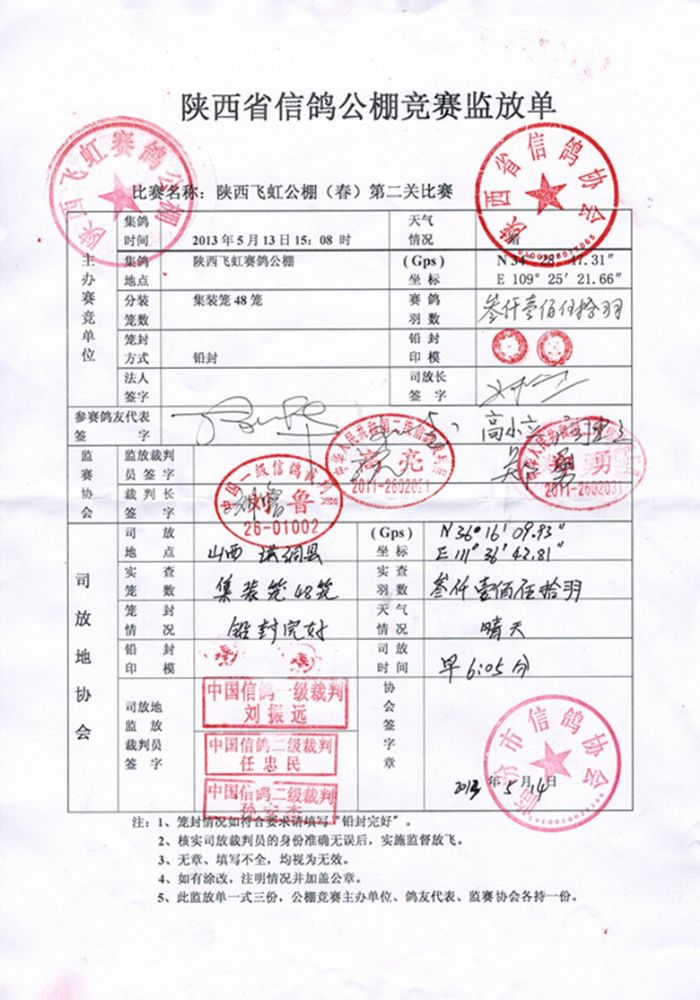 陕西省信鸽公棚竞赛监放单
陕西飞虹赛鸽公棚
陕西省信鸽协会
比赛名称：陕西飞虹公棚（春）第二关比赛
主办赛竞单位
集鸽时间 2013年5月13日15：08 时
天气情况
集鸽地点 陕西飞虹赛鸽公棚
（Gps）坐标
E 109° 25′ 21.66″
分装笼数 集装笼48笼
赛鸽羽数 叁仟壹佰伍拾羽
笼封方式 铅封
铅封印模
法人签字
司放长签字
参赛鸽友代表签字
监赛协会
监放裁判员签字
裁判长签字
高亮
2011-2602051
勇
2011-2602031
中国一级信鸽裁判员
鲁
26-01002
司放地协会
司放地点 山西 洪洞县
（Gps）坐标 N 36° 16′ 09.93″
E 111° 36′ 42.81″
实查笼数 集装笼48笼
实查羽数 叁仟壹佰伍拾羽
笼封情况 铅封完好
天气情况 晴天
铅封印模
司放时间 早6:05分
司放地监放裁判员签字
中国信鸽一级裁判
刘振远
中国信鸽二级裁判
任忠民
中国信鸽二级裁判
协会签字章
市信鸽协会
2013年5月14日
注：1、笼封情况如符合要求请填写“铅封完好”。
2、核实司放裁判员的身份准确无误后，实施监督放飞。
3、无章、填写不全，均视为无效。
4、如有涂改，注明情况并加盖公章。
5、此监放单一式三份，公棚竞赛主办单位、鸽友代表、监赛协会各持一份。